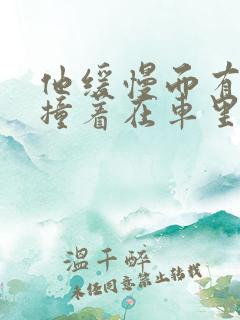 他缓慢而有
撞着在车里
温千醉
未经同意禁止转载